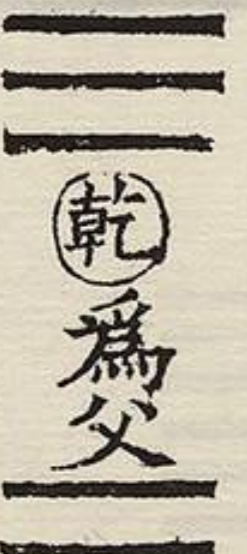 乾爲父